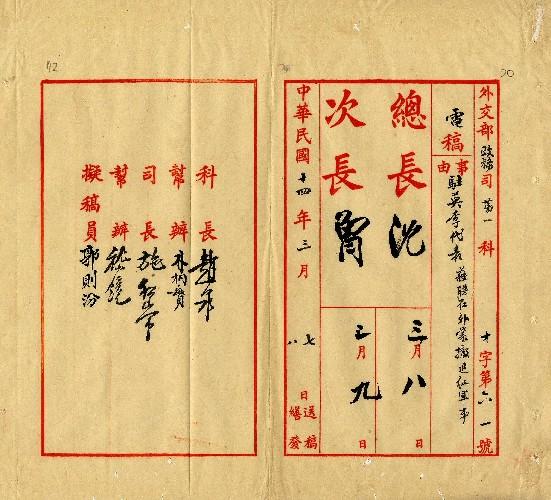 20
外交部政務司第一科 才字第六一號
電稿
事由
駐英李代表 在外蒙撤退紅軍事
總長 沈
三月八日
次長
三月九日
中華民國十四年三月 七日送稿
八 繕發
42
科長
幫辦 朱
司長 施
幫辦
擬稿員 郭則汾